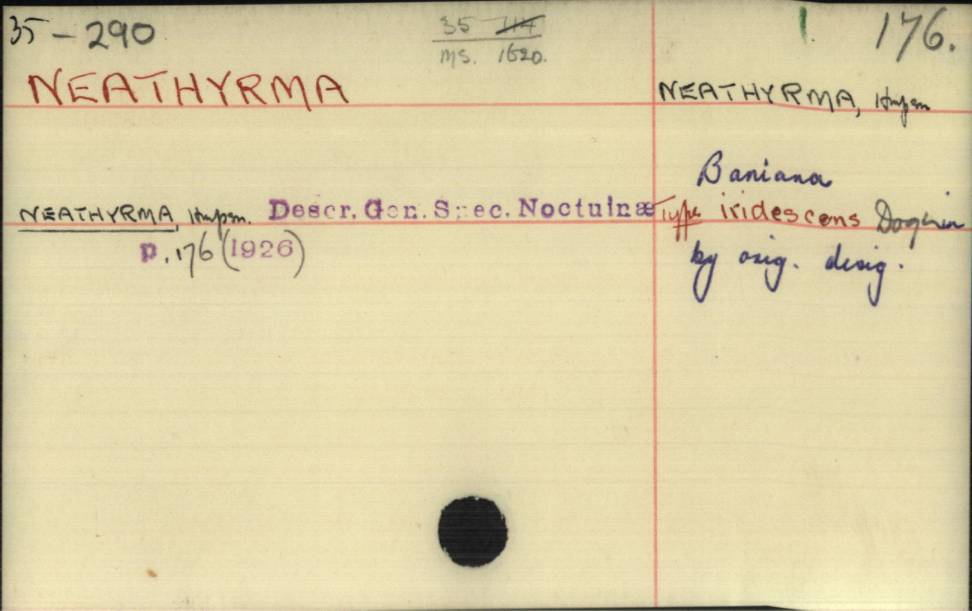 35-290
35 114
MS. 1620.
1.
176.
NEATHYRMA
NEATHYRMA, Hmpsn
Baniana
NEATHYRMA, Hmpsn. Descr. Gen. Spec. Noctuinæ
Type iridescens Dognin
p. 176 (1926)
by orig. desig.